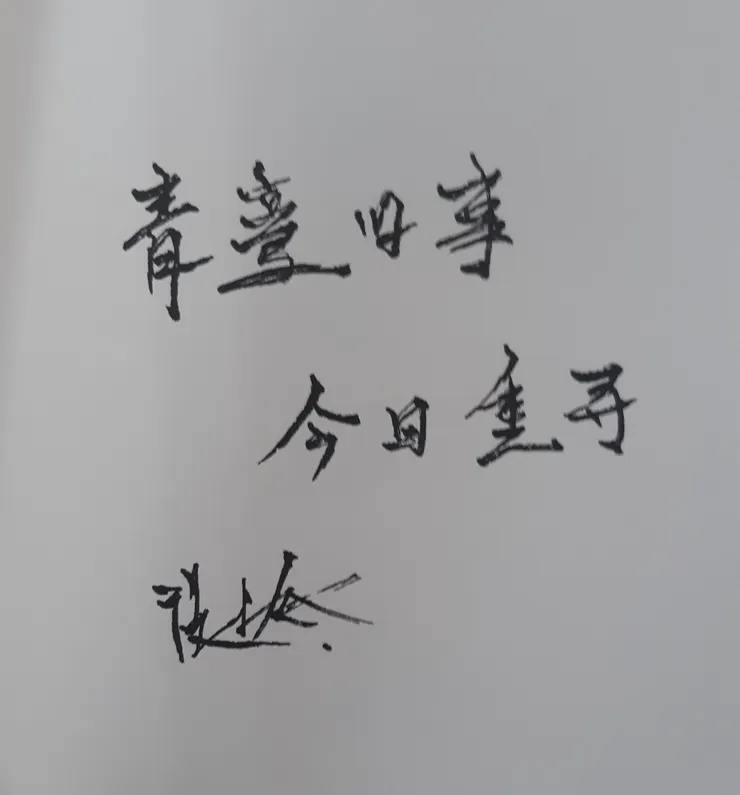 青臺旧事
今日重寻